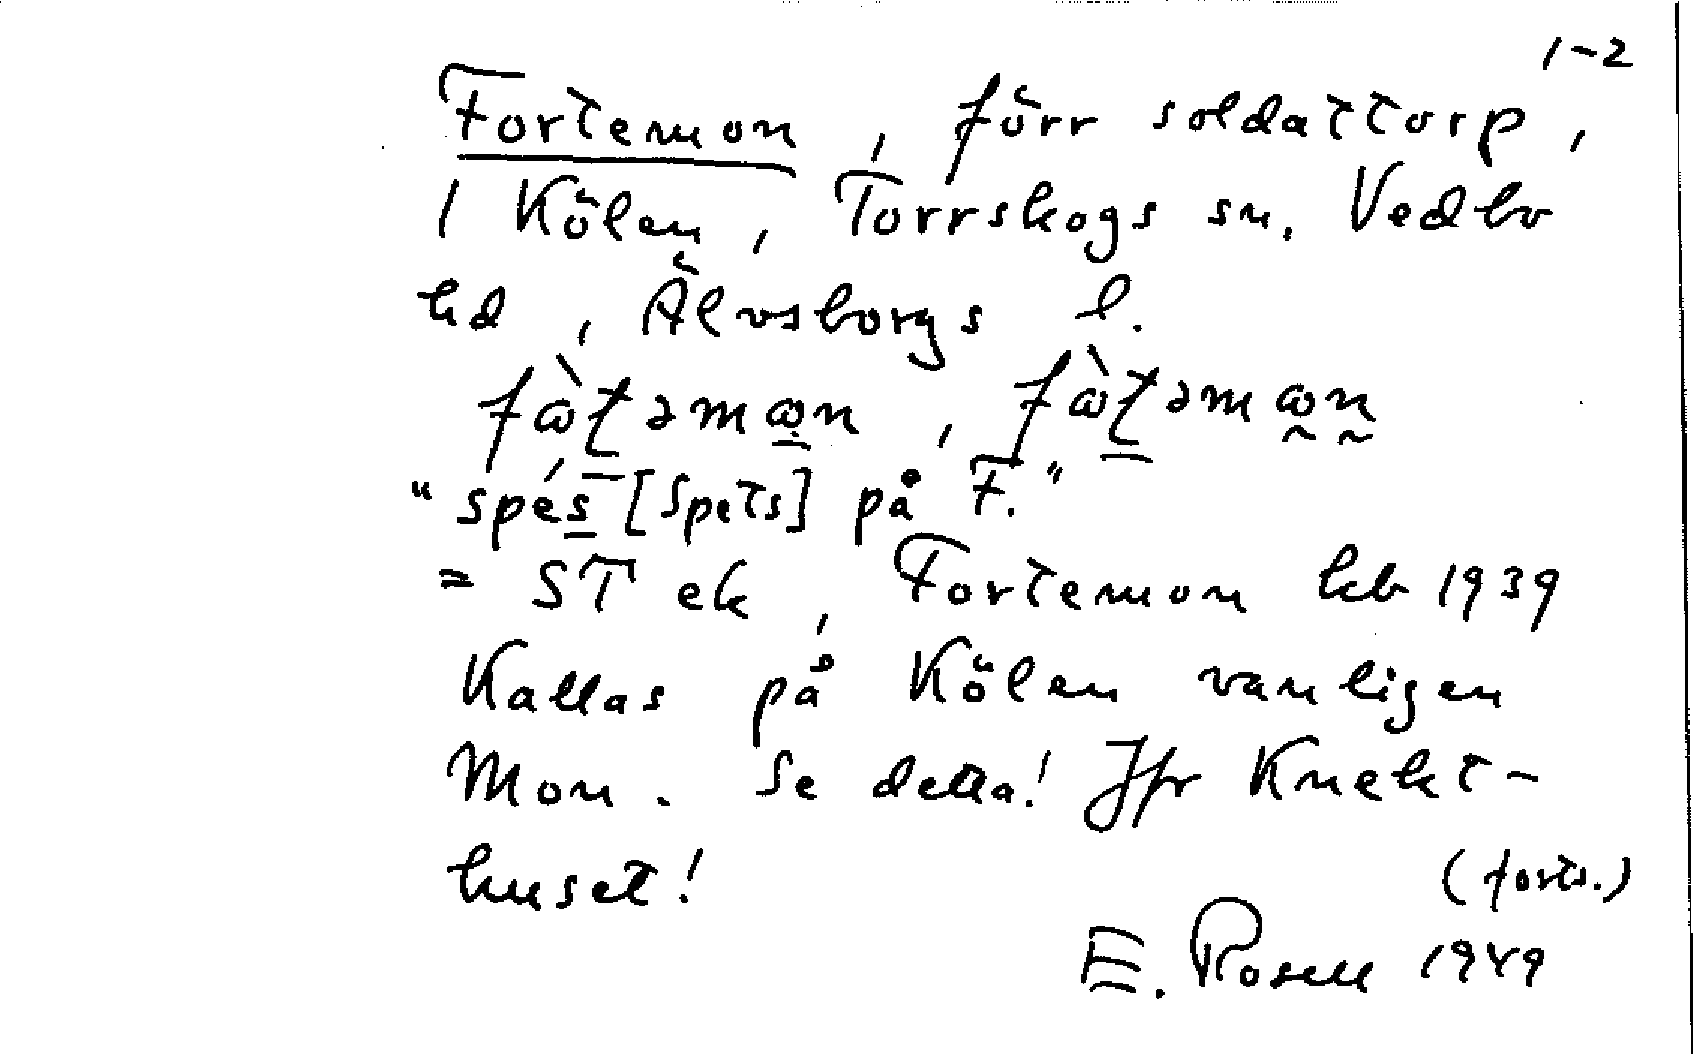 1-2
Fortemon, förr soldattorp,
i Kölen, Torrskogs sn. Vedbo
hd, Älvsborgs l.
fὼt̠əmω̠n, fὼt̠əmω̰n̰
"spés̠ [Spets] på F."
= ST ek, Fortemon kb 1939
Kallas på Kölen vanligen
Mon. Se detta! Jfr Knekt-
huset!
(forts.)
E. Rosell 1949